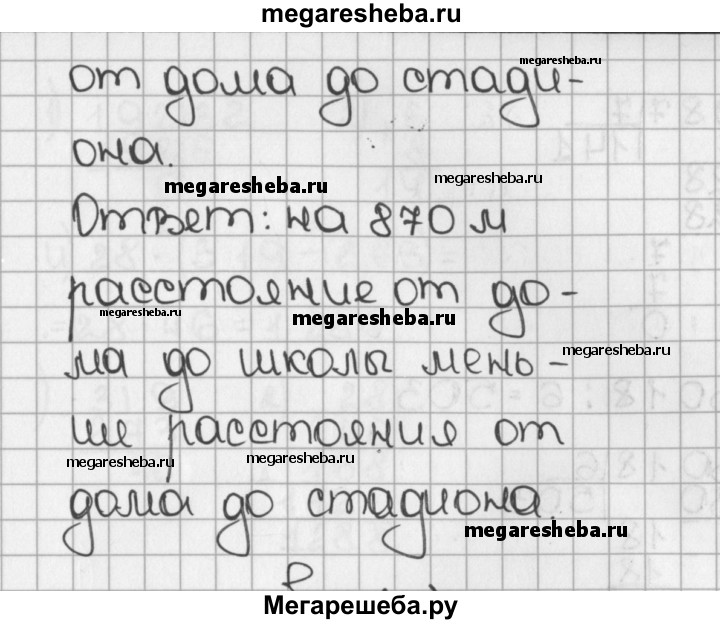 megaresheba.ru
megaresheba.ru
от дома до стади-
она.
megaresheba.ru
megaresheba.ru
Ответ: на 870 м
расстояние от до-
megaresheba.ru
megaresheba.ru
ма до школы мень-
megaresheba.ru
ше расстояния от
megaresheba.ru
megaresheba.ru
дома до стадиона.
megaresheba.ru
Мегарешеба.ру